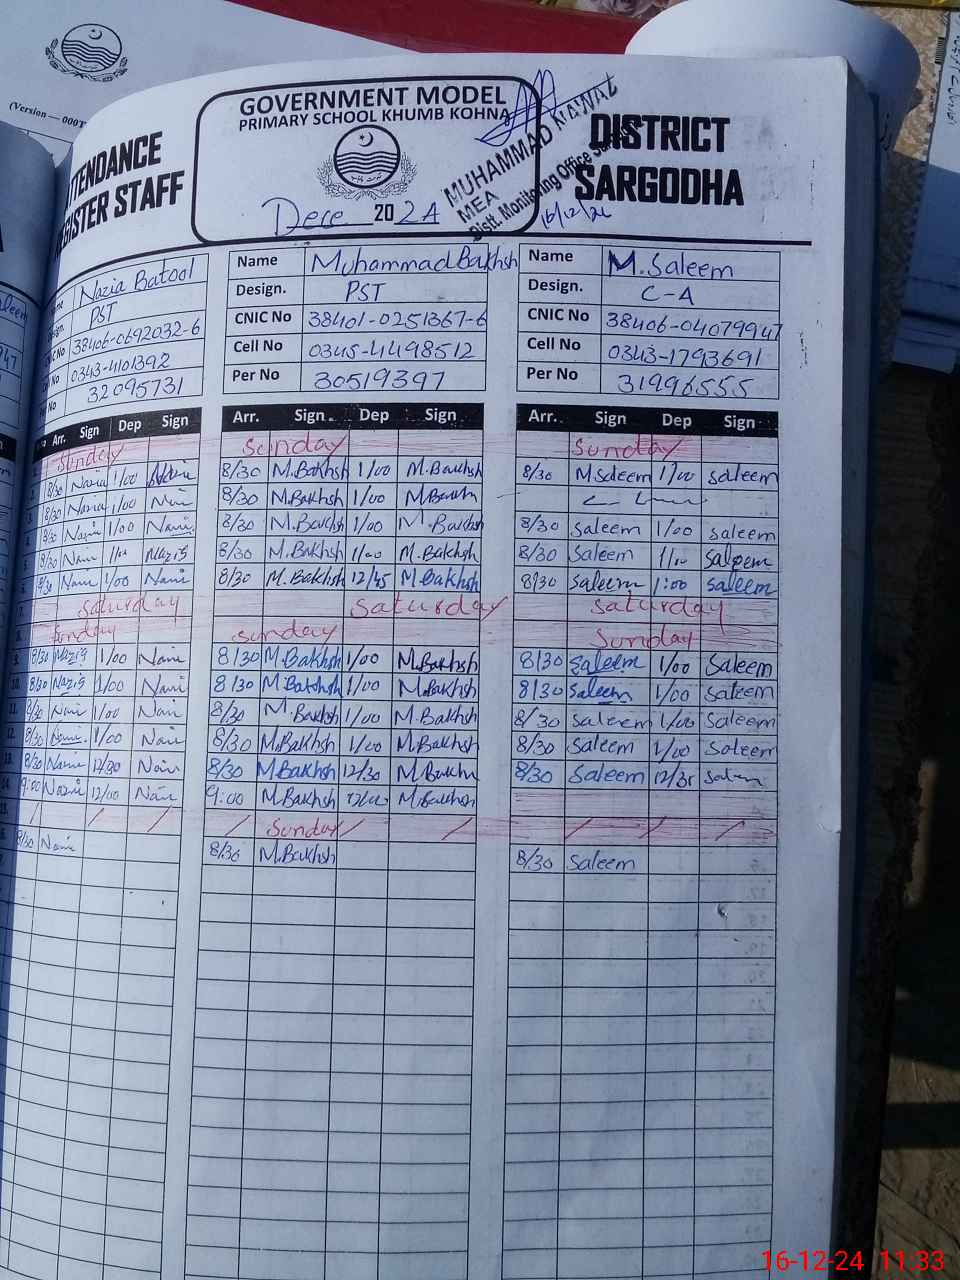 (Version — 000T
ATTENDANCE
REGISTER STAFF
GOVERNMENT MODEL
PRIMARY SCHOOL KHUMB KOHNA
Dece 2024
MUHAMMAD NAWAZ
MEA
Distt. Monitoring Office
16/12/24
DISTRICT
SARGODHA
Name Nazia Batool Name Muhammad Bakhsh Name M. Saleem
Design. PST Design. PST Design. C-A
CNIC No 38406-0692032-6 CNIC No 38401-0251367-6 CNIC No 38406-04079947
Cell No 0343-4101392 Cell No 0345-4498512 Cell No 0343-1793691
Per No 32095731 Per No 30519397 Per No 31996555
Arr. Sign Dep Sign Arr. Sign. Dep Sign Arr. Sign Dep Sign
Sunday Sunday Sunday
8/30 Nazia 1/00 8/30 M.Bakhsh 1/00 M.Bakhsh 8/30 M Saleem 1/00 saleem
8/30 Nazia 1/00 8/30 M.Bakhsh 1/00 M.Bakhsh
8/30 1/00 8/30 M.Bakhsh 1/00 M.Bakhsh 8/30 saleem 1/00 saleem
8/30 1/00 Nazia 8/30 M.Bakhsh 1/00 M.Bakhsh 8/30 Saleem 1/00 saleem
8/30 1/00 8/30 M.Bakhsh 12/45 M.Bakhsh 8/30 saleem 1:00 saleem
7. saturday saturday saturday
8. Sunday sunday Sunday
9. 8/30 Nazia 1/00 8/30 M.Bakhsh 1/00 M.Bakhsh 8/30 saleem 1/00 Saleem
10. 8/30 Nazia 1/00 8/30 M.Bakhsh 1/00 M.Bakhsh 8/30 saleem 1/00 saleem
11. 8/30 1/00 8/30 M.Bakhsh 1/00 M.Bakhsh 8/30 saleem 1/00 Saleem
12. 8/30 1/00 8/30 M.Bakhsh 1/00 M.Bakhsh 8/30 Saleem 1/00 Saleem
13. 8/30 12/30 8/30 M.Bakhsh 12/30 M.Bakhsh 8/30 Saleem 12/31 Saleem
14. 9:00 Nazia 12/00 9:00 M.Bakhsh 12/00 M.Bakhsh
15. / / / / Sunday / / / / /
8/30 8/30 M.Bakhsh 8/30 Saleem
16-12-24 11:33